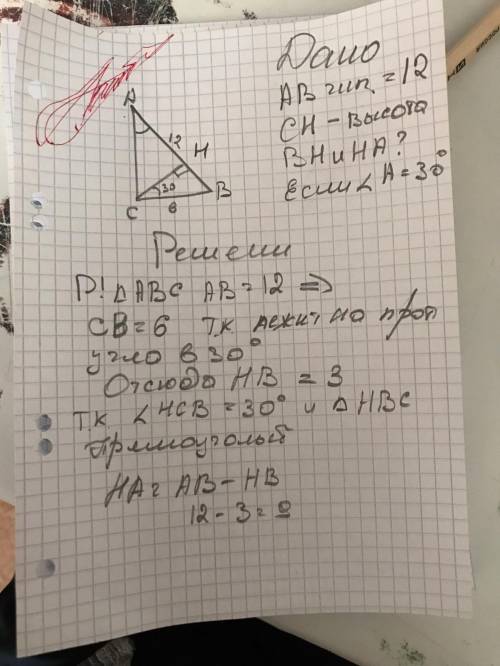 Дано
AB гип. = 12
CH - высота
BH и HA?
Если ∠A = 30°
A
12
H
30
B
C
6
Решени
P! △ABC AB = 12 =>
CB = 6 тк лежит на прот
угла в 30°
Отсюда HB = 3
тк ∠HCB = 30° и △HBC
прямоуголый
HA = AB - HB
12 - 3 = 9